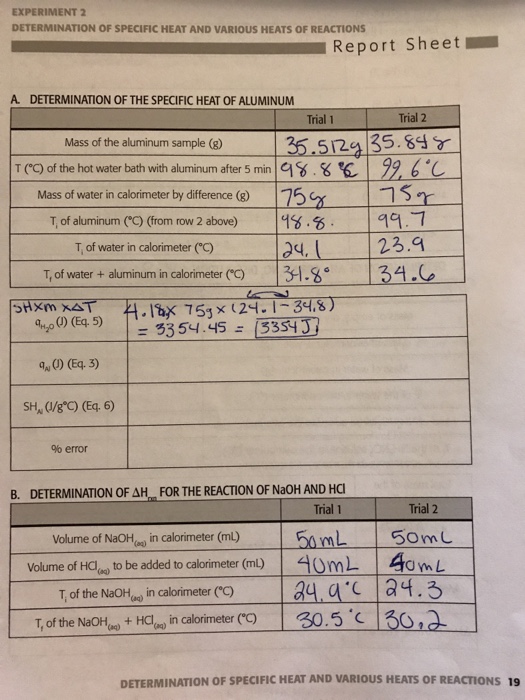 EXPERIMENT 2
DETERMINATION OF SPECIFIC HEAT AND VARIOUS HEATS OF REACTIONS
Report Sheet
A. DETERMINATION OF THE SPECIFIC HEAT OF ALUMINUM
Trial 1 Trial 2
Mass of the aluminum sample (g) 35.512g 35.848g
T (°C) of the hot water bath with aluminum after 5 min 98.8°C 99.6°C
Mass of water in calorimeter by difference (g) 75g 75g
Tᵢ of aluminum (°C) (from row 2 above) 98.8. 99.7
Tᵢ of water in calorimeter (°C) 24.1 23.9
T_f of water + aluminum in calorimeter (°C) 34.8° 34.6
SHxm xΔT 4.18x 75g x (24.1-34.8)
q_H₂O (J) (Eq. 5) = 3354.45 = 3354J
q_Al (J) (Eq. 3)
SH_Al (J/g°C) (Eq. 6)
% error
B. DETERMINATION OF ΔH_rxn FOR THE REACTION OF NaOH AND HCl
Trial 1 Trial 2
Volume of NaOH(aq) in calorimeter (mL) 50mL 50mL
Volume of HCl(aq) to be added to calorimeter (mL) 40mL 40mL
Tᵢ of the NaOH(aq) in calorimeter (°C) 24.9°C 24.3
T_f of the NaOH(aq) + HCl(aq) in calorimeter (°C) 30.5°C 30.2
DETERMINATION OF SPECIFIC HEAT AND VARIOUS HEATS OF REACTIONS 19